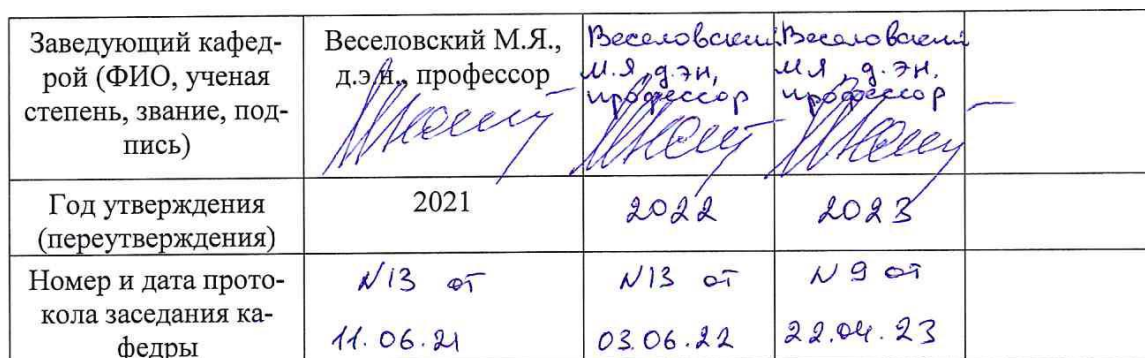 Заведующий кафед-
рой (ФИО, ученая
степень, звание, под-
пись)
Веселовский М.Я.,
д.э.н., профессор
Веселовский
М.Я, д.эн,
профессор
Веселовский
М.Я, д.эн,
профессор
Год утверждения
(переутверждения)
2021
2022
2023
Номер и дата прото-
кола заседания ка-
федры
N13 от
11.06.21
N13 от
03.06.22
N9 от
22.04.23